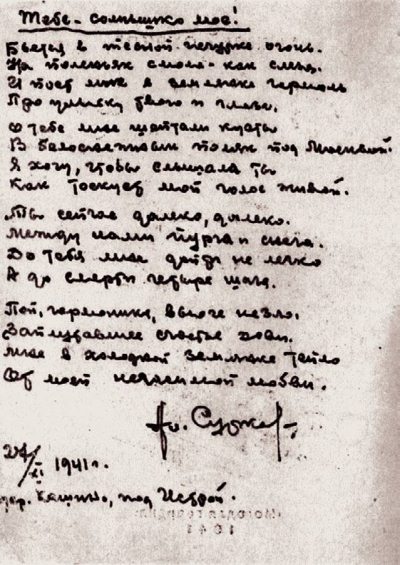 Тебе - солнышко мое!
Бьется в тесной печурке огонь.
На поленьях смола - как слеза.
И поет мне в землянке гармонь
Про улыбку твою и глаза.
О тебе мне шептали кусты
В белоснежных полях под Москвой.
Я хочу, чтобы слышала ты
Как тоскует мой голос живой.
Ты сейчас далеко, далеко.
Между нами пурга и снега.
До тебя мне дойти не легко
А до смерти четыре шага.
Пой, гармоника, вьюге назло.
Заплутавшее счастье зови.
Мне в холодной землянке тепло
От моей негасимой любви.
Ал. Сурков
27/XI 1941 г.
дер. Кашино, под Истрой.
1941